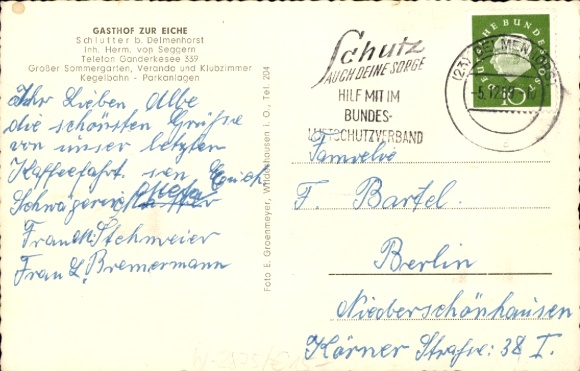 GASTHOF ZUR EICHE
Schlutter b. Delmenhorst
Inh. Herm. von Seggern
Telefon Ganderkesee 339
Großer Sommergarten, Veranda und Klubzimmer
Kegelbahn - Parkanlagen
Ihr Lieben Alle
die schönsten Grüße
von unser letzten
Kaffeefahrt. von
Schwägerin
Frau M. Stehmeier
Frau L. Bremermann
Foto E. Groenmeyer, Wildeshausen i. O., Tel. 204
Schutz
AUCH DEINE SORGE
HILF MIT IM
BUNDES-
LUFTSCHUTZVERBAND
(23) DELMENHORST
-5.12.59
DEUTSCHE BUNDESPOST
10
F. Bartel.
Berlin
Niederschönhausen
Körner Straße: 38 I.